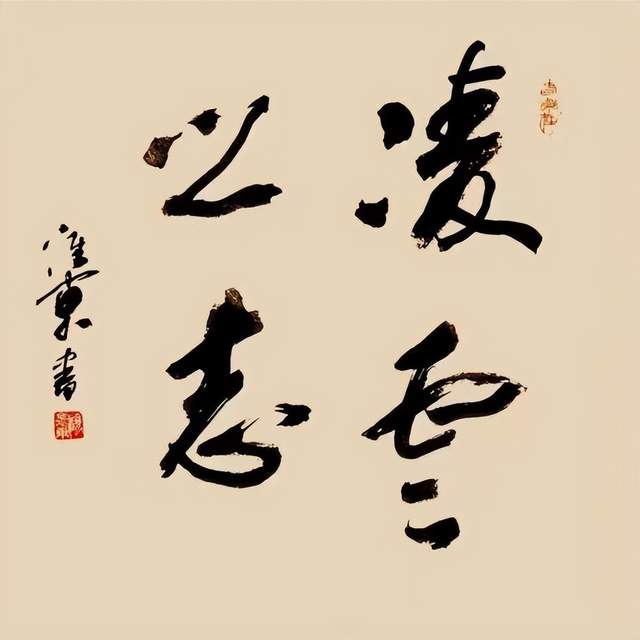 凌雲
之志
東書